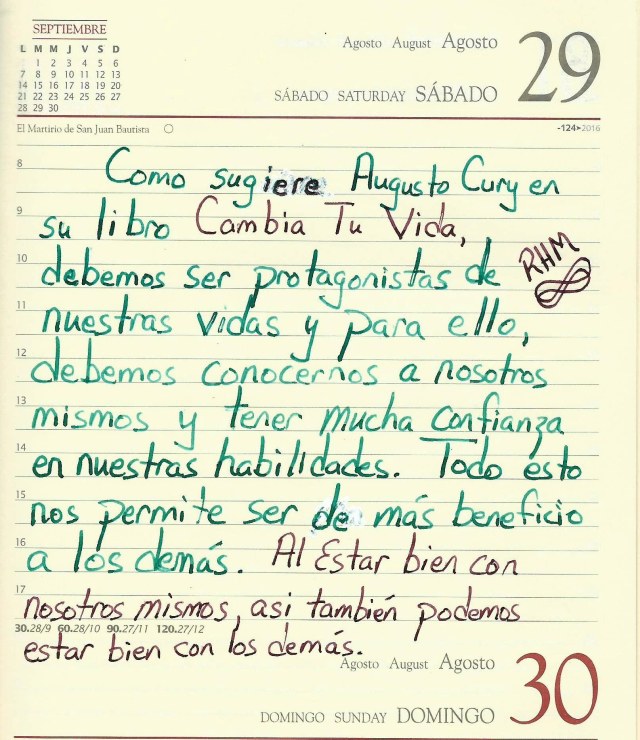 SEPTIEMBRE
L M M J V S D
1 2 3 4 5 6
7 8 9 10 11 12 13
14 15 16 17 18 19 20
21 22 23 24 25 26 27
28 29 30
Agosto August Agosto
SÁBADO SATURDAY SÁBADO
29
El Martirio de San Juan Bautista
-124➤2016
8
Como sugiere Augusto Cury en
9
su libro Cambia Tu Vida,
RHM
10
debemos ser protagonistas de
11
nuestras vidas y para ello,
12
debemos conocernos a nosotros
13
mismos y tener mucha confianza
14
en nuestras habilidades. Todo esto
15
nos permite ser de más beneficio
16
a los demás. Al Estar bien con
17
nosotros mismos, asi también podemos
30.28/9 60.28/10 90.27/11 120.27/12
estar bien con los demás.
Agosto August Agosto
DOMINGO SUNDAY DOMINGO
30